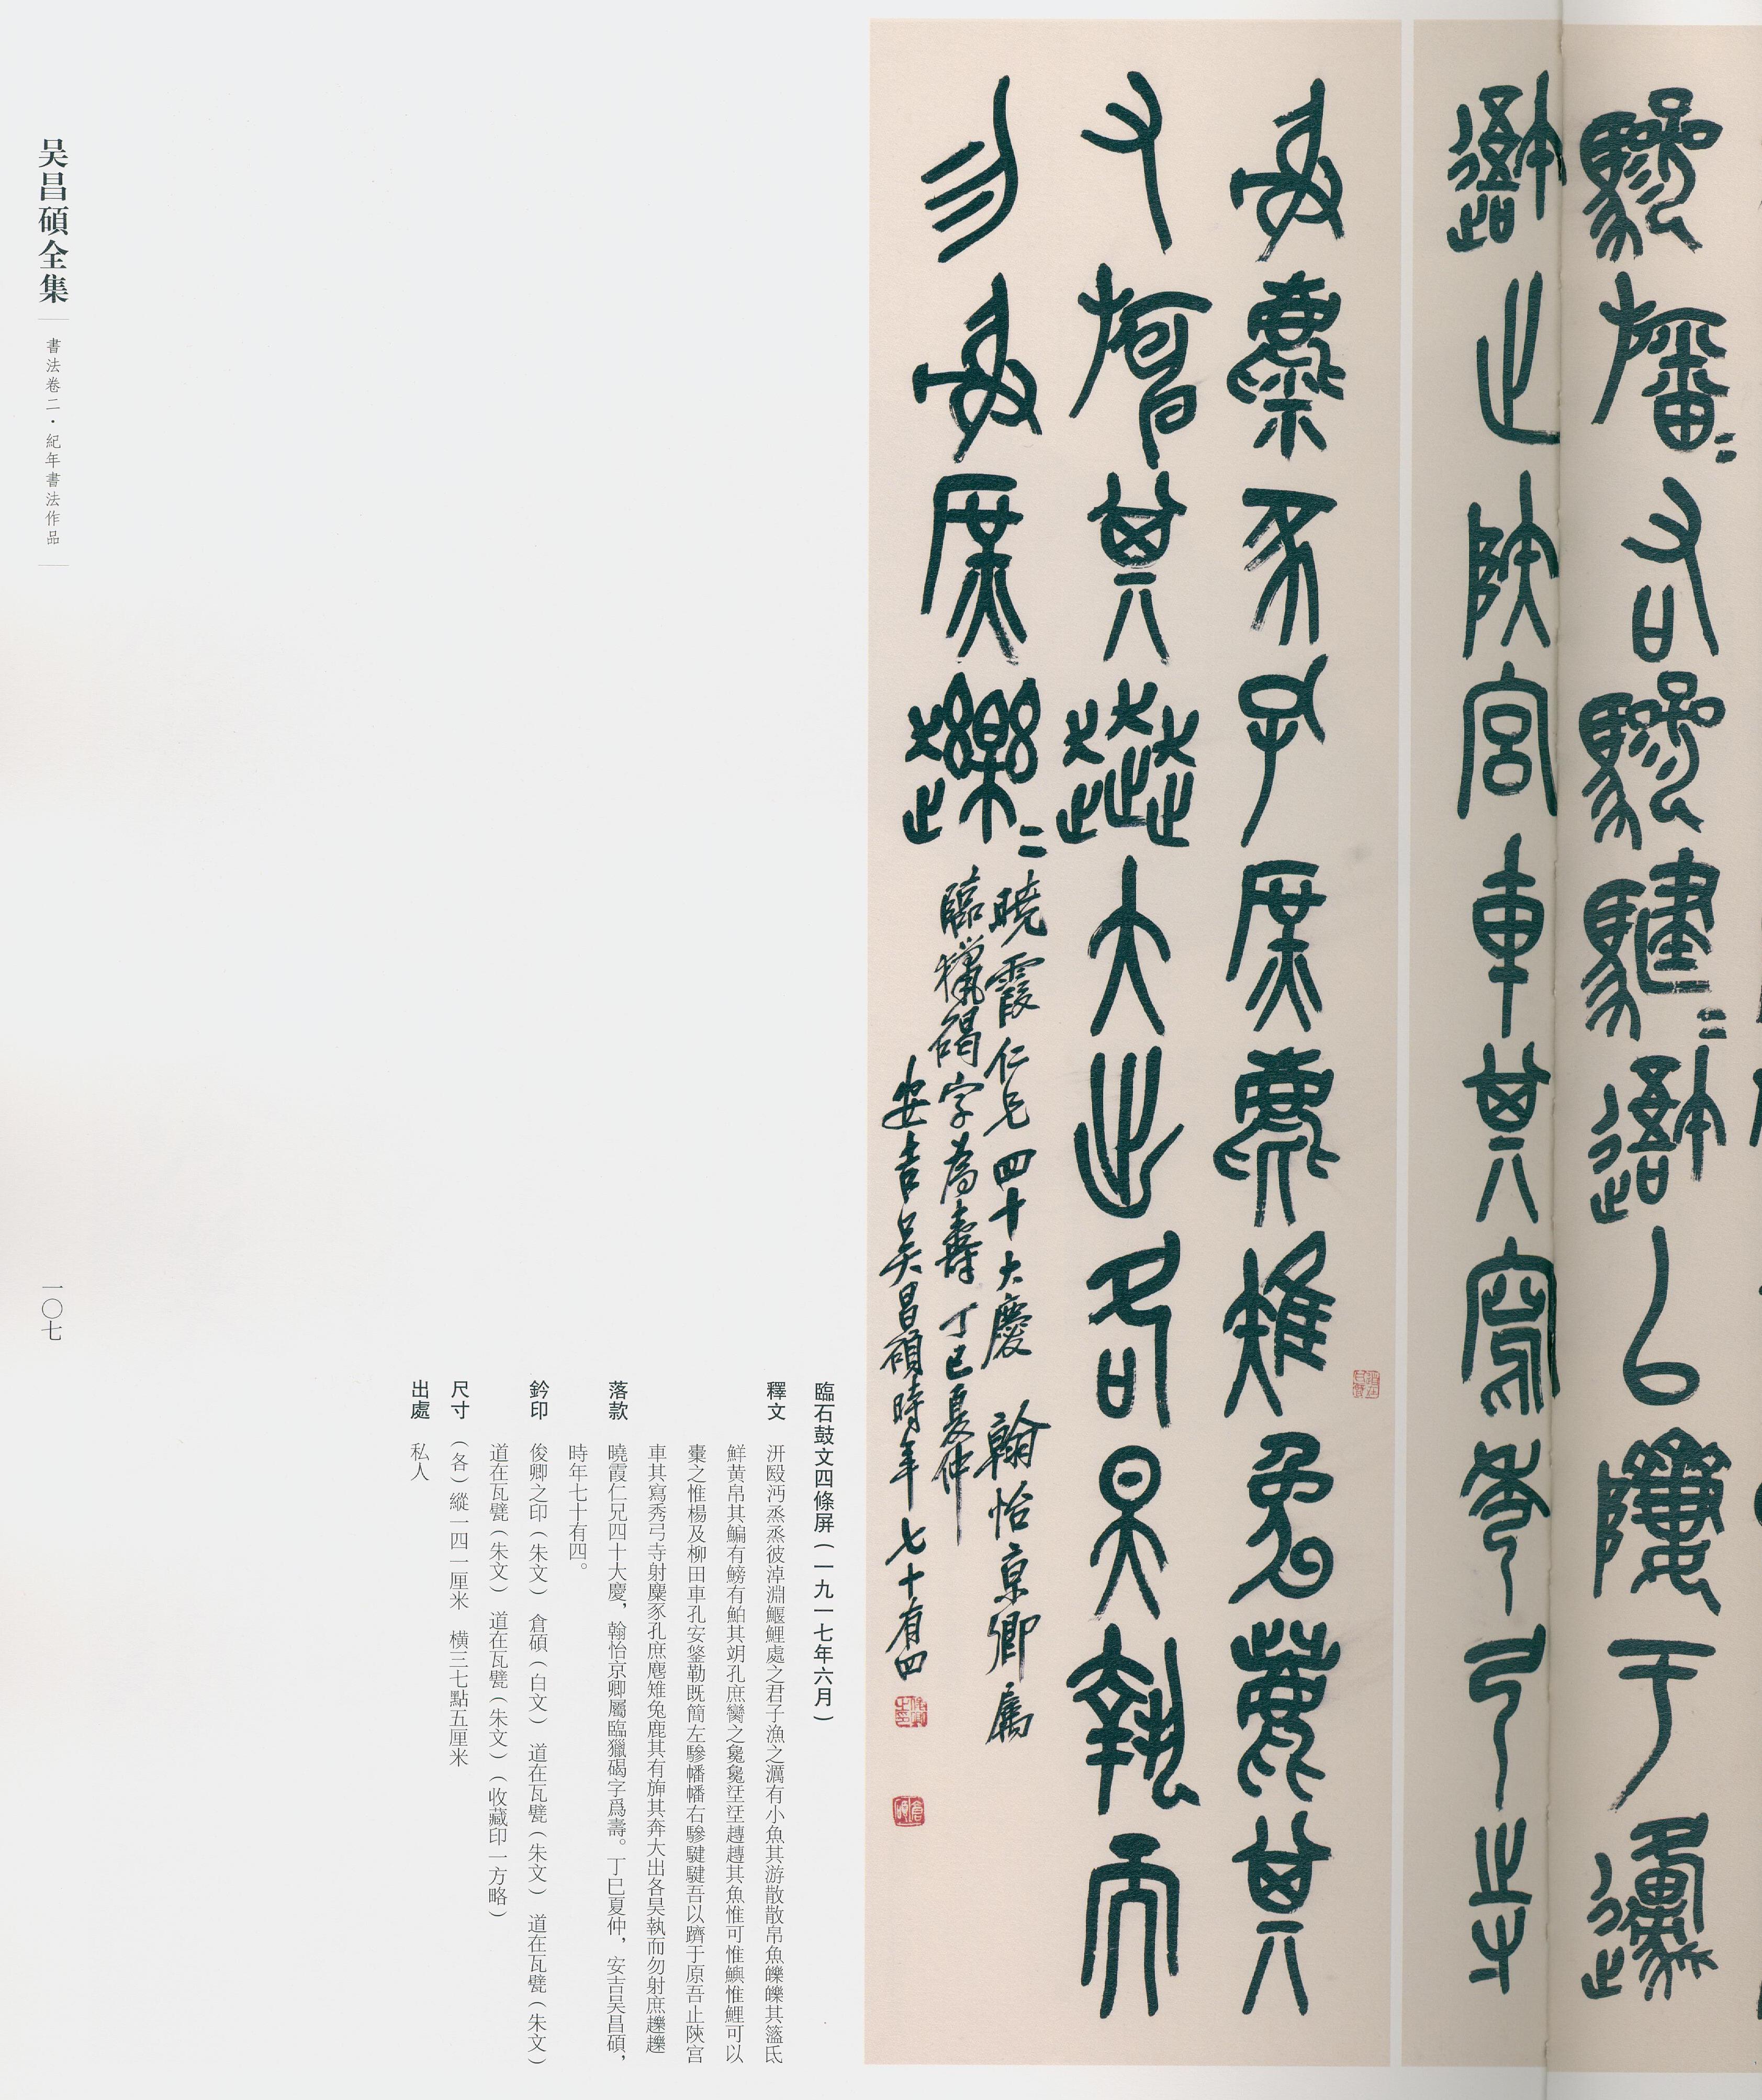 驂幡〻右驂騝〻吾以隮于邍
吾止陝宮車其寫秀弓寺
射麋豕孔庶麀雉兔鹿其
又旃其𧼒大出各昊執而
勿射庶趮〻
曉霞仁兄四十大慶 翰怡京卿屬
臨獵碣字為壽 丁巳夏仲
安吉吴昌碩時年七十有四
臨石鼓文四條屏（一九一七年六月）
釋文 汧殹沔烝烝彼淖淵鰋鯉處之君子漁之澫有小魚其游散散帛魚皪皪其籃氐
鮮黄帛其鯿有鰟有鮊其胡孔庶臠之毚毚汪汪趣趣其魚惟可惟鱮惟鯉可以
橐之惟楊及柳田車孔安鋚勒既簡左驂幡幡右驂騝騝吾以隮于原吾止陝宫
車其寫秀弓寺射麋豕孔庶麀雉兔鹿其有旃其奔大出各昊執而勿射庶趮趮
落款 曉霞仁兄四十大慶，翰怡京卿屬臨獵碣字爲壽。丁巳夏仲，安吉吴昌碩，
時年七十有四。
鈐印 俊卿之印（朱文） 倉碩（白文） 道在瓦甓（朱文） 道在瓦甓（朱文）
道在瓦甓（朱文） 道在瓦甓（朱文）（收藏印一方略）
尺寸 （各）縱一四一厘米 横三七點五厘米
出處 私人
吴昌碩全集
書法卷二·紀年書法作品
一〇七